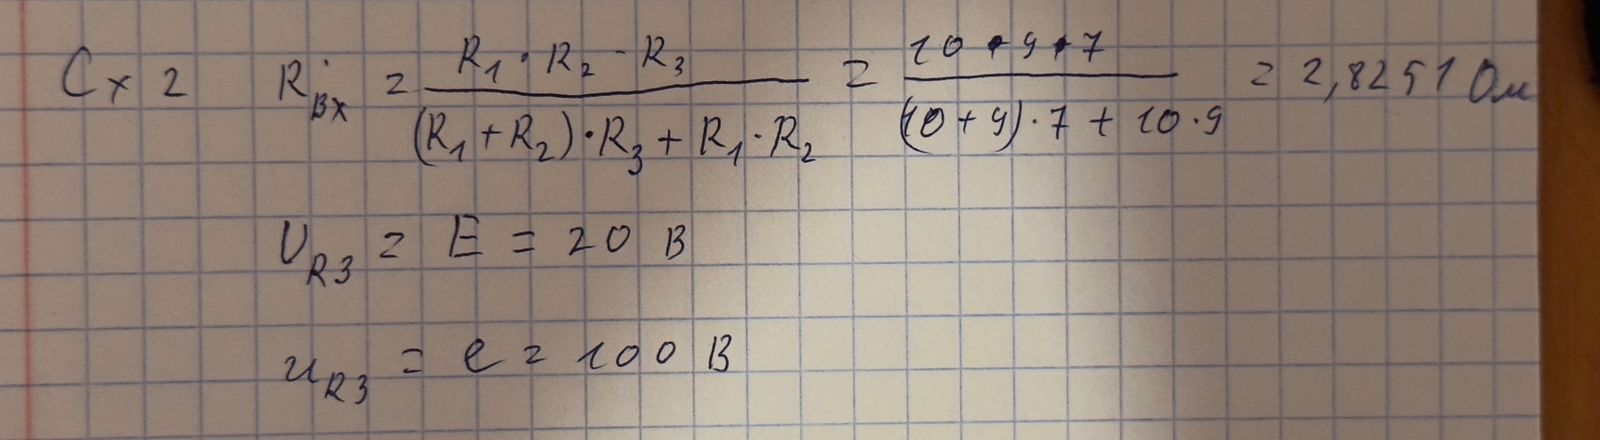 Сх 2 R_вх = (R_1 · R_2 · R_3) / ((R_1 + R_2) · R_3 + R_1 · R_2) = (10 · 9 · 7) / ((10 + 9) · 7 + 10 · 9) = 2,8251 Ом
U_R3 = E = 20 В
u_R3 = e = 100 В